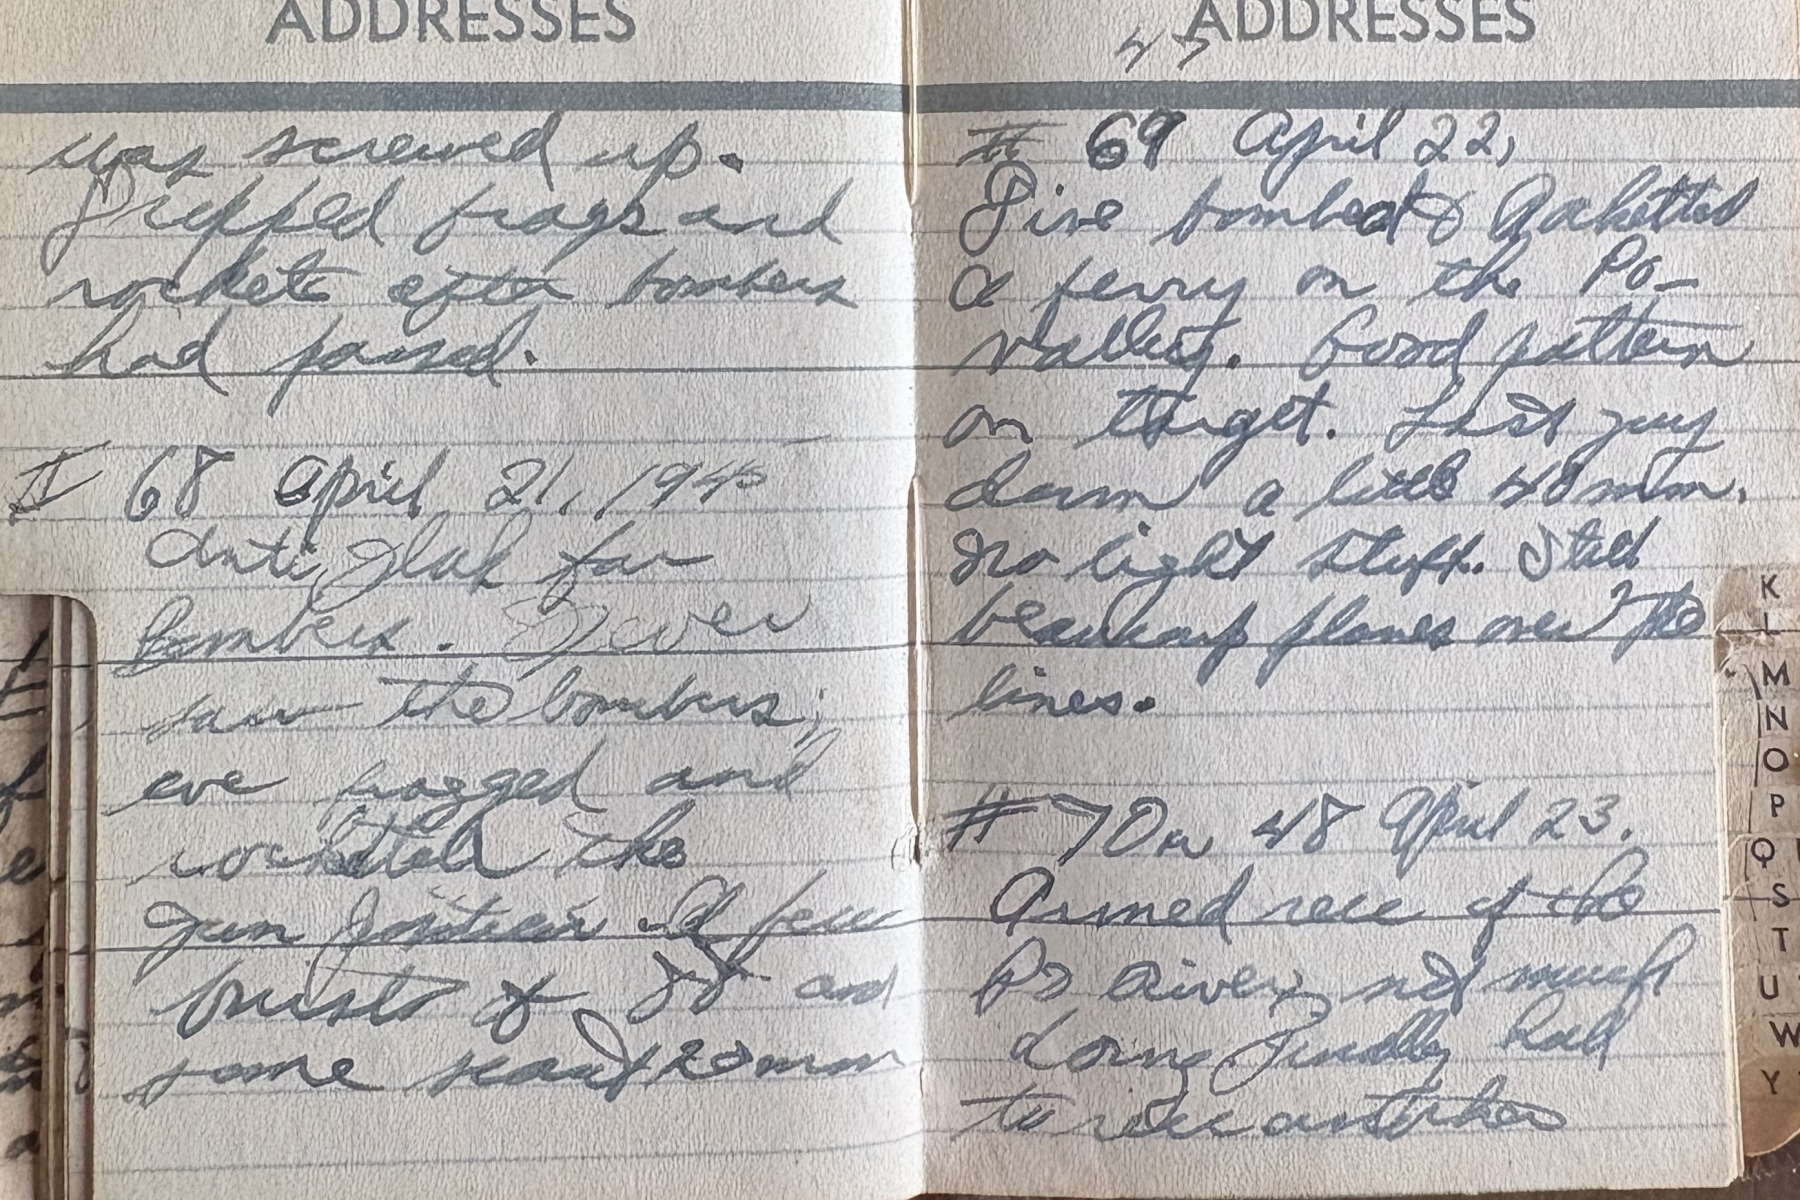 ADDRESSES
was screwed up.
Dropped frags and
rockets after bombers
had passed.
# 68 April 21, 1945
Anti Flak for
Bombers. Never
saw the bombers;
we fragged and
rocketed the
gun positions A few
bursts of 88 and
some scant 20mm
ADDRESSES
45
# 69 April 22,
Dive bombed & Rocketted
a ferry on the Po
Valley. Good pattern
on target. Last guy
down a little 40mm.
No light stuff. Still
planes over the
lines.
# 70 April 23.
Armed recc of the
Po River, not much
doing Finally had
to
K
L
M
N
O
P
Q
S
T
U
W
Y